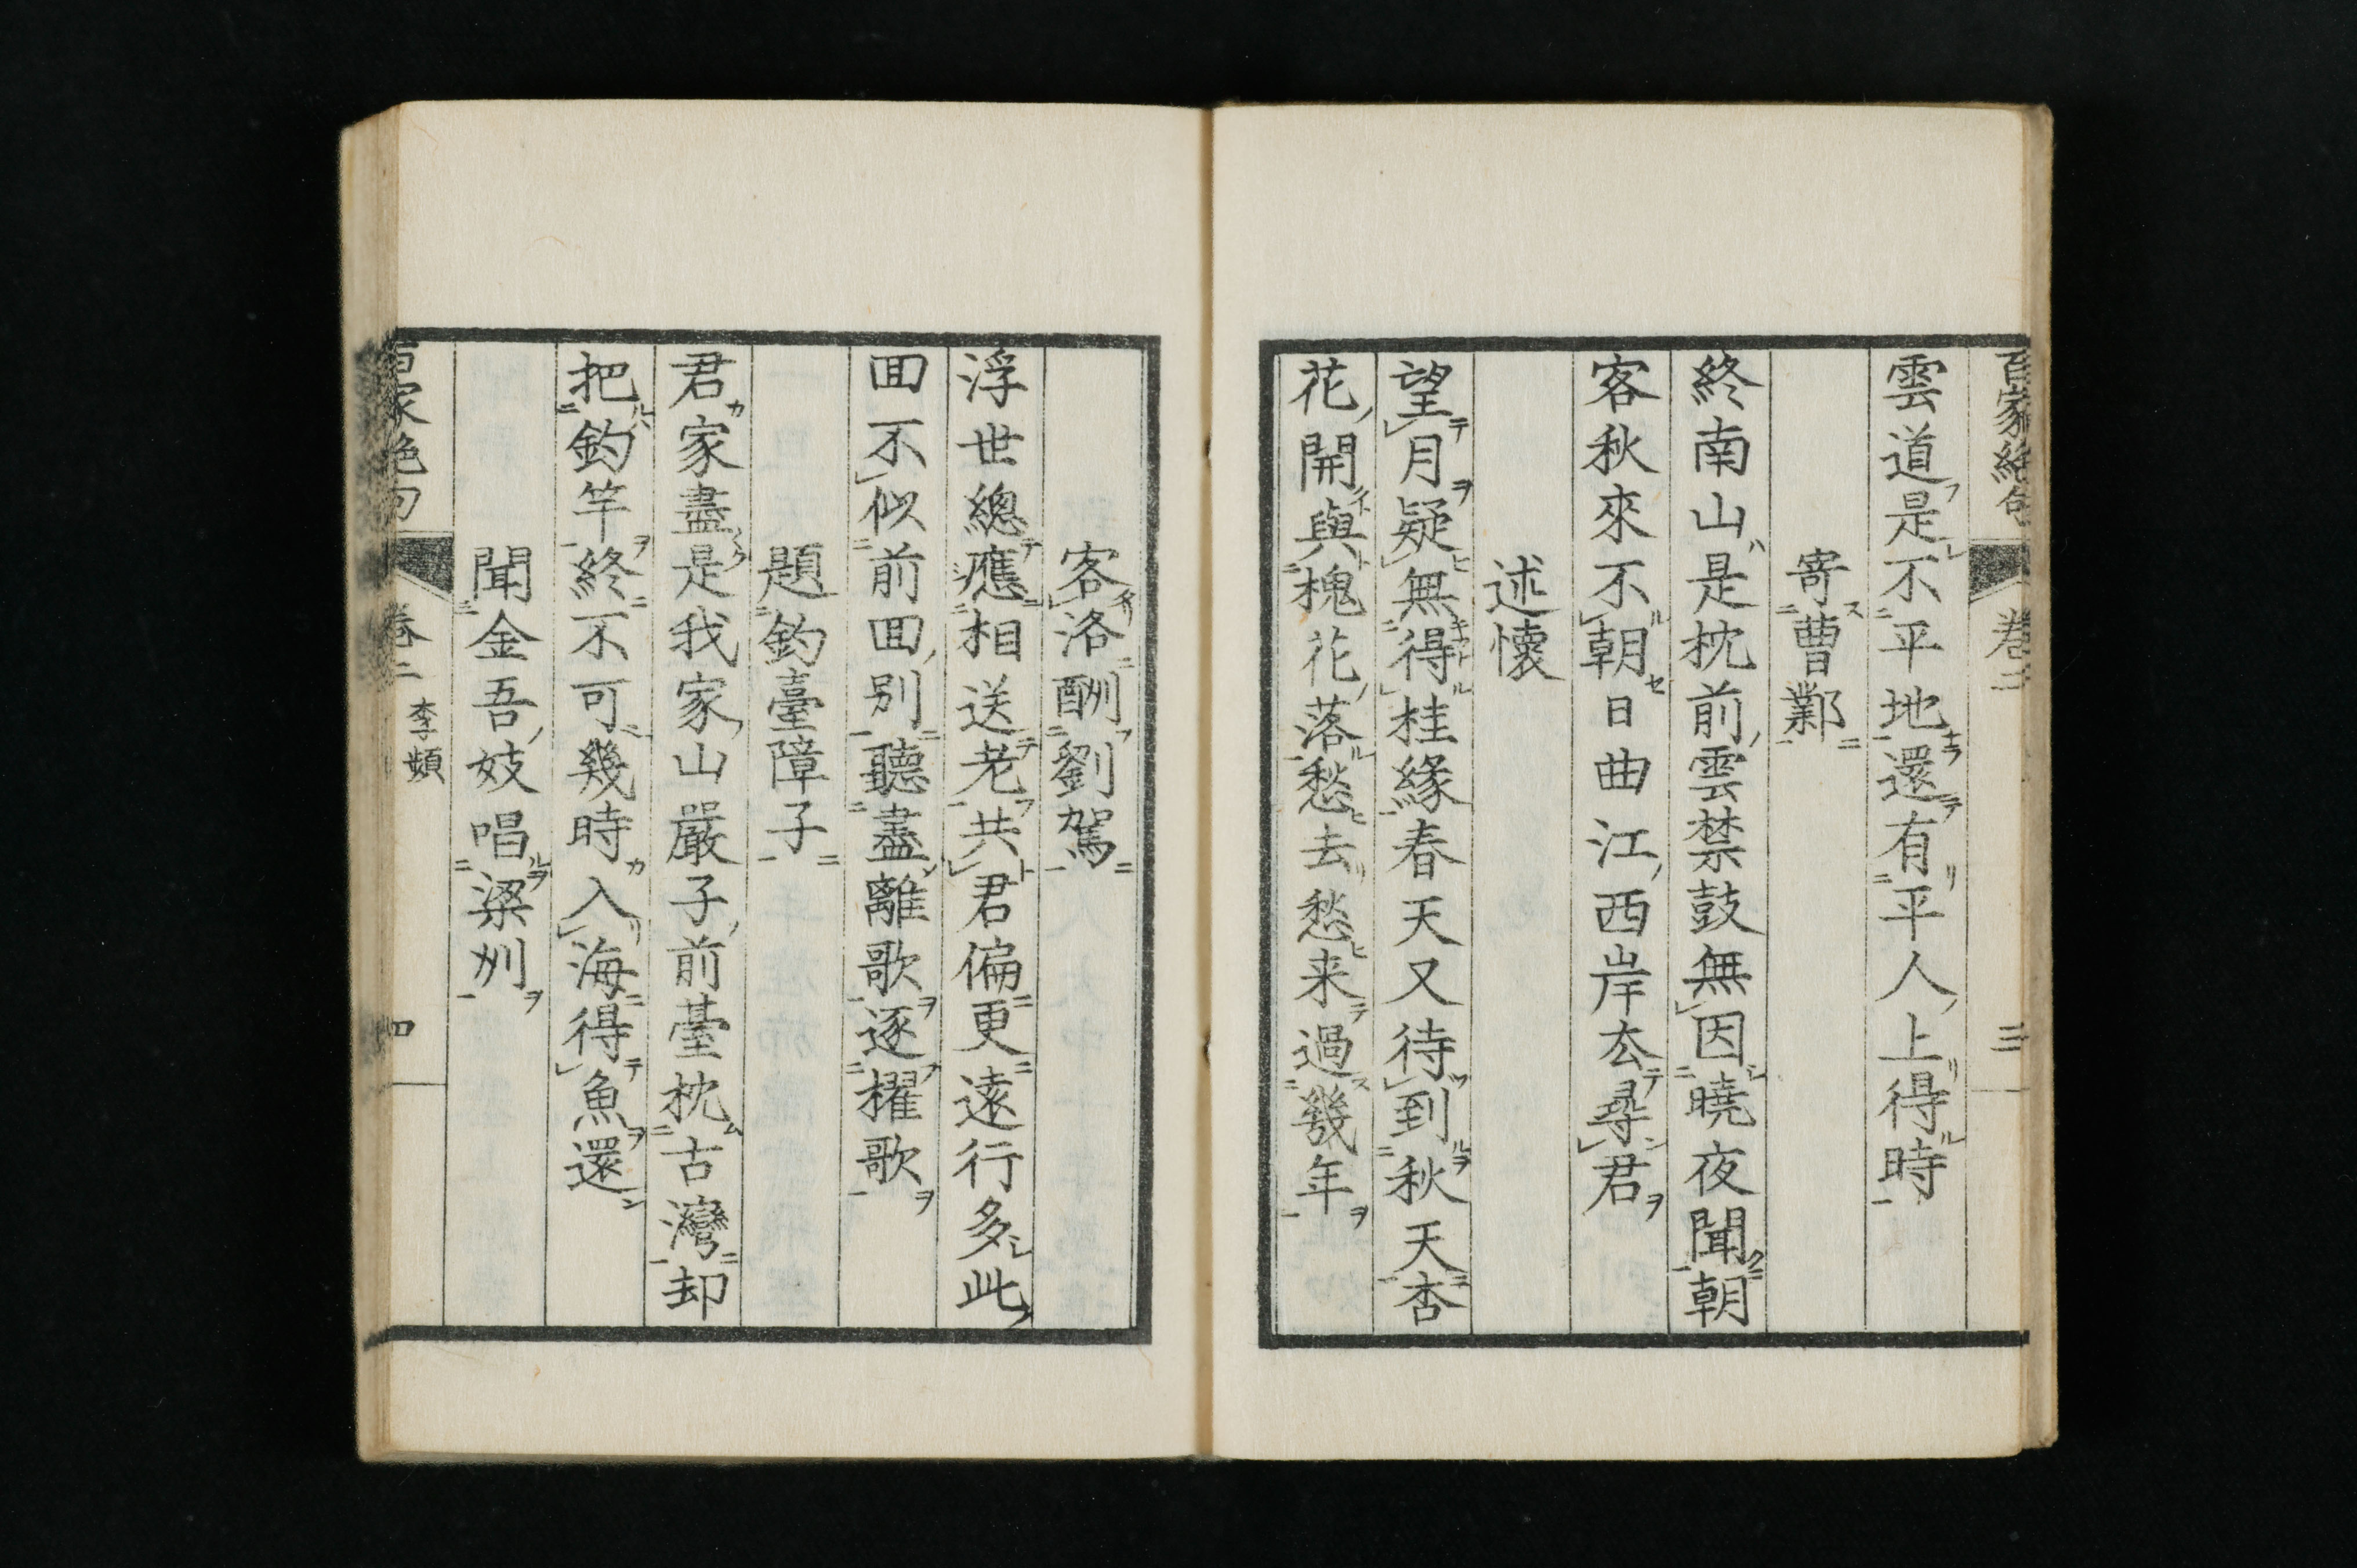 百家絶句 卷二 三
雲道是不平地還有平人上得時
寄曹鄴
終南山是枕前雲禁鼓無因曉夜聞朝
客秋來不朝日曲江西岸去尋君
述懷
望月疑無得桂緣春天又待到秋天杏
花開與槐花落愁去愁来過幾年
客洛酬劉駕
浮世總應相送老共君偏更遠行多此
回不似前回別聽盡離歌逐櫂歌
題釣臺障子
君家盡是我家山嚴子前臺枕古灣却
把釣竿終不可幾時入海得魚還
聞金吾妓唱梁州
百家絶句 卷二 李頻 四